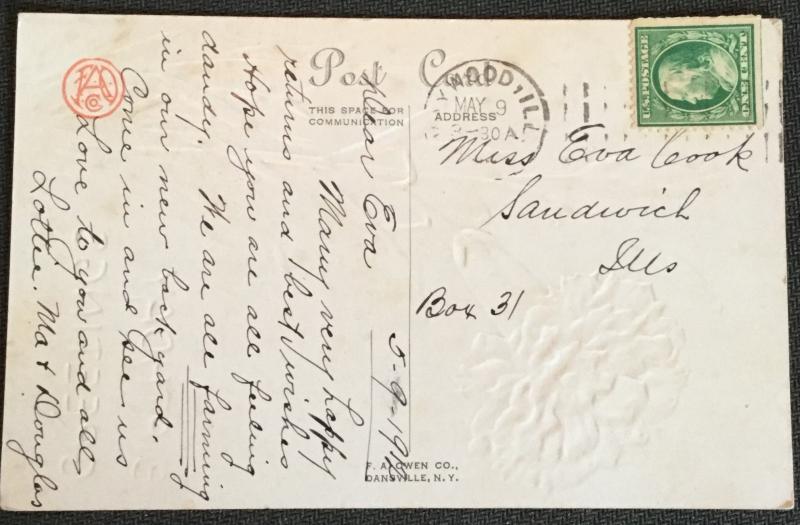 Post Card
THIS SPACE FOR
COMMUNICATION
ADDRESS
WOOD, ILL
MAY 9
30 A
U.S. POSTAGE
ONE CENT
Miss Eva Cook
Sandwich
Ills
Box 31
5-9-19
Dear Eva
Many very happy
returns and best wishes
Hope you are all feeling
dandy. We are all farming
in our new back yard.
Come in and see us
Love to you and all
Lottie. Ma & Douglas
F. A. OWEN CO.,
DANSVILLE, N. Y.